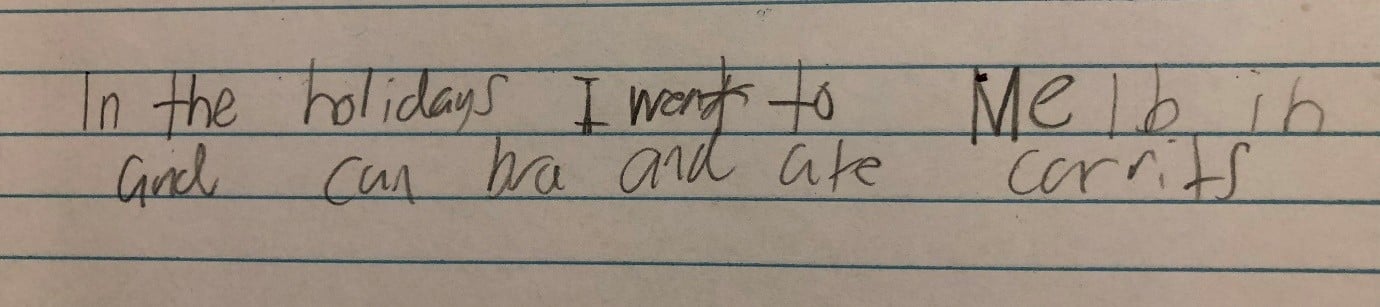 In the holidays I went to Melb in
and can bra and ate carrits